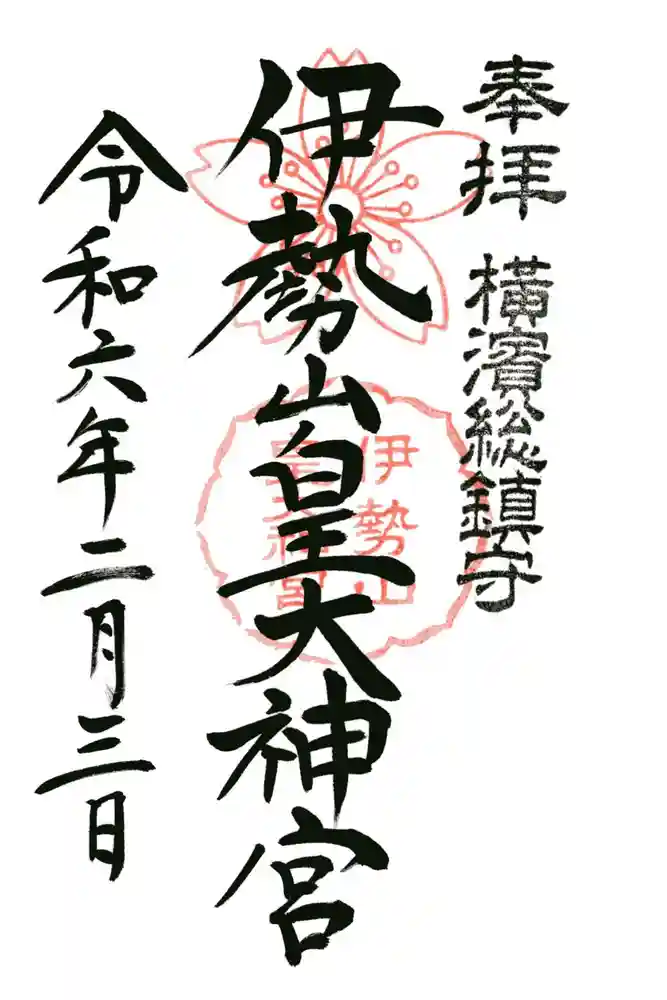 奉拝 横濱総鎮守
伊勢山皇大神宮
伊勢山
皇大神宮
令和六年二月三日